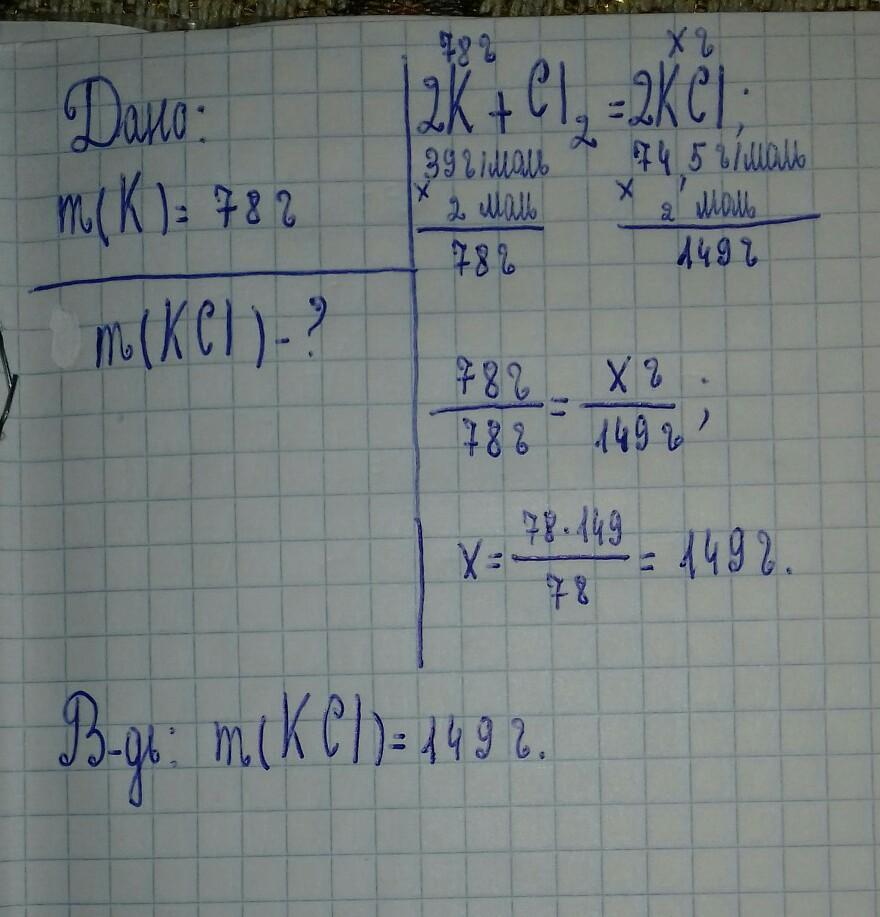 Дано:
m(K)= 78 г
m(KCl)-?
78 г x г
2K + Cl₂ = 2KCl;
39 г/моль 74,5 г/моль
x 2 моль x 2 моль
78 г 149 г
78 г / 78 г = X г / 149 г ;
X = 78·149 / 78 = 149 г.
В-дь: m(KCl)= 149 г.